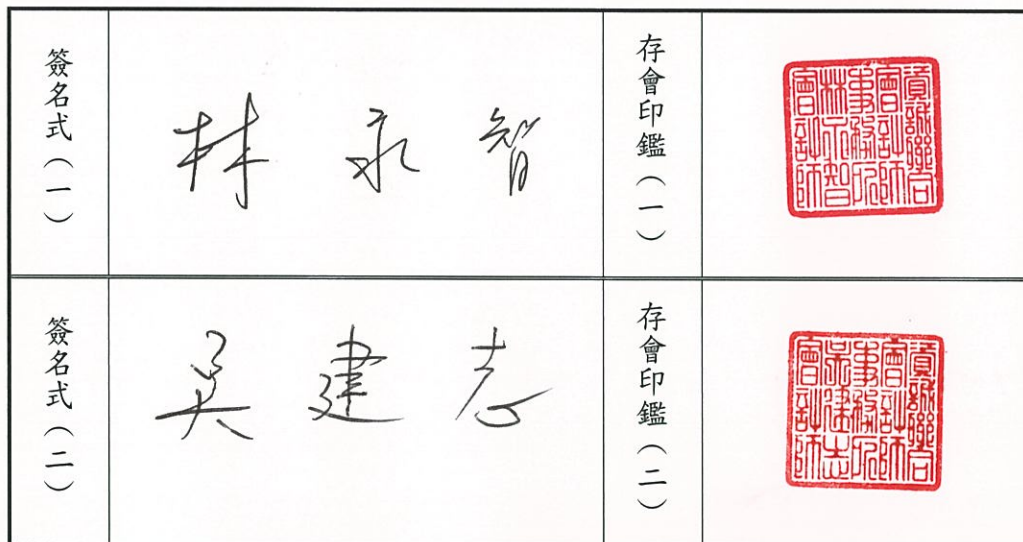 簽名式(一)
林永智
存會印鑑(一)
資誠聯合
會計師
事務所
林永智
會計師
簽名式(二)
吳建志
存會印鑑(二)
資誠聯合
會計師
事務所
吳建志
會計師